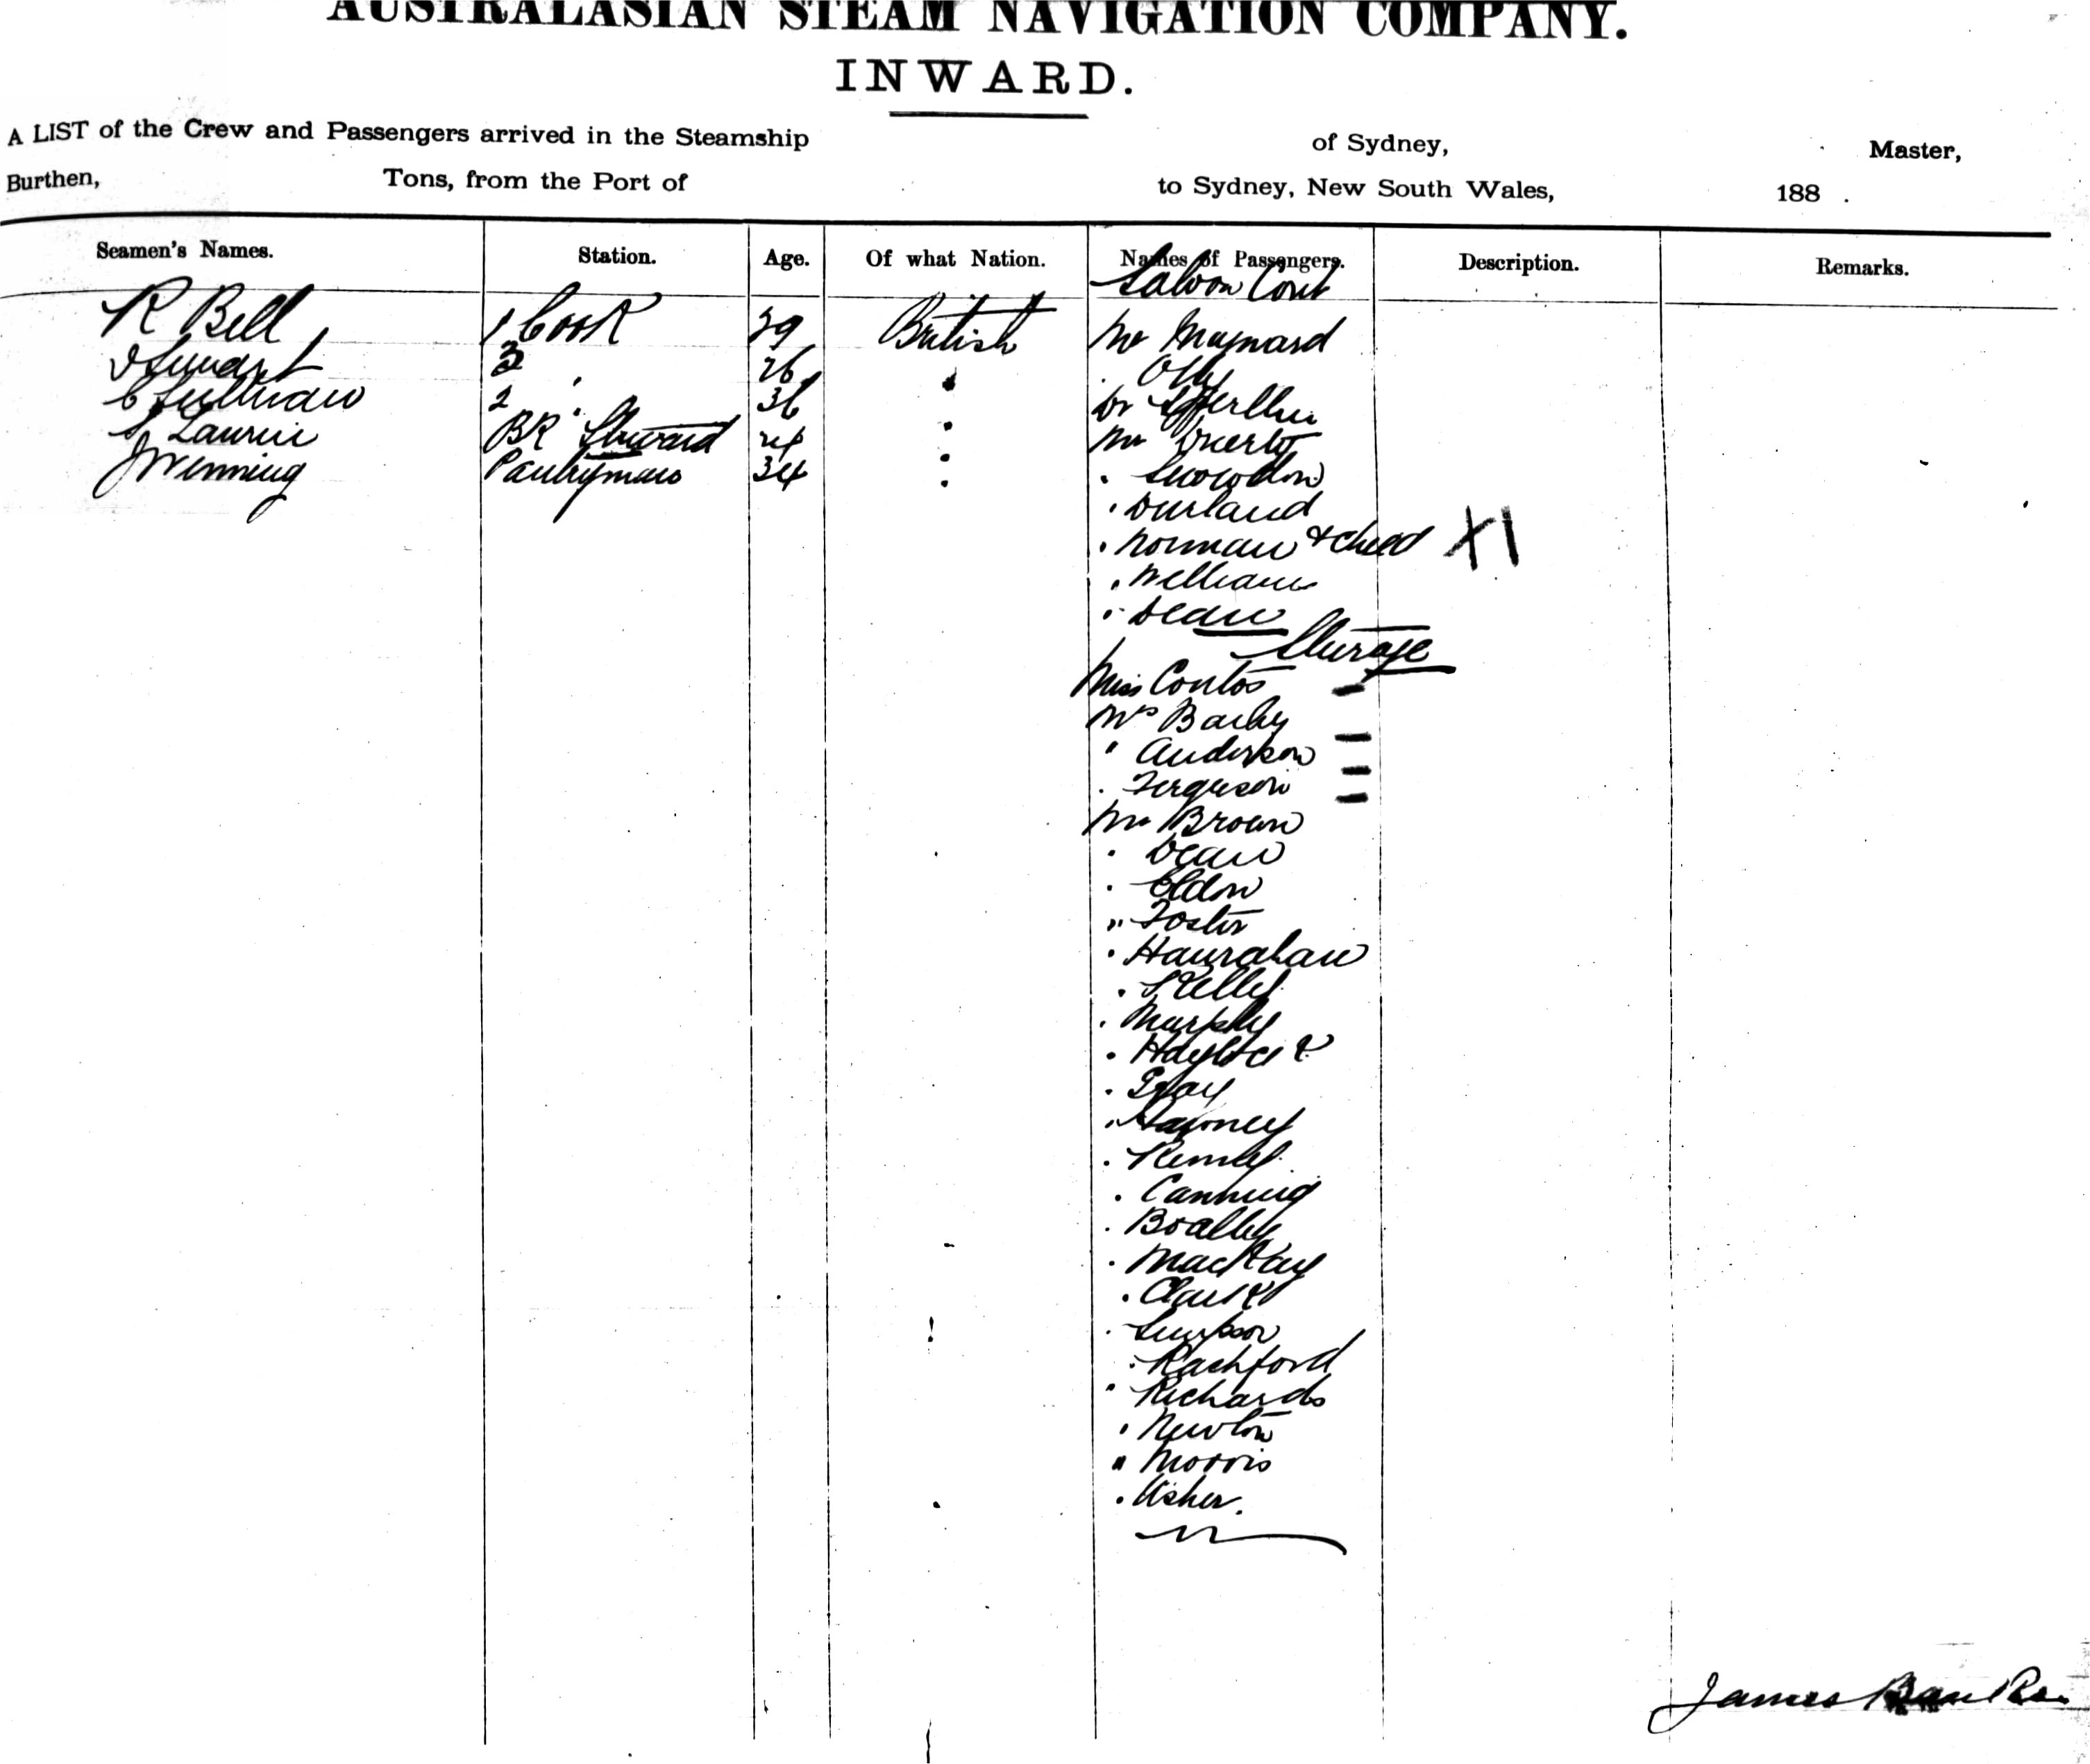 AUSTRALASIAN STEAM NAVIGATION COMPANY.
INWARD.
A LIST of the Crew and Passengers arrived in the Steamship of Sydney, Master,
Burthen, Tons, from the Port of to Sydney, New South Wales, 188 .
Seamen's Names. Station. Age. Of what Nation. Names of Passengers. Description. Remarks.
Saloon Cont
R Bell 1 Cook 39 British Mr Maynard
Stewart 3 " 26 "
C Sullivan 2 " 36 " Dr
Laurie BR Steward 24 " Mr
J Wenning Pantryman 34 " . Snowdon
. Durland
. Norman & child X1
. Williams
. Dean
Steerage
Miss Contos –
Mrs Barley –
" Anderson –
. Ferguson –
Mr Brown
. Dean
. Eldon
" Foster
. Hanrahan
. Kelly
. Murphy
.
. Gray
.
. Kenny
. Canning
.
. MacKay
. Clark
. Simpson
. Rachford
" Richards
. Newton
" Morris
. Usher.
James Banks